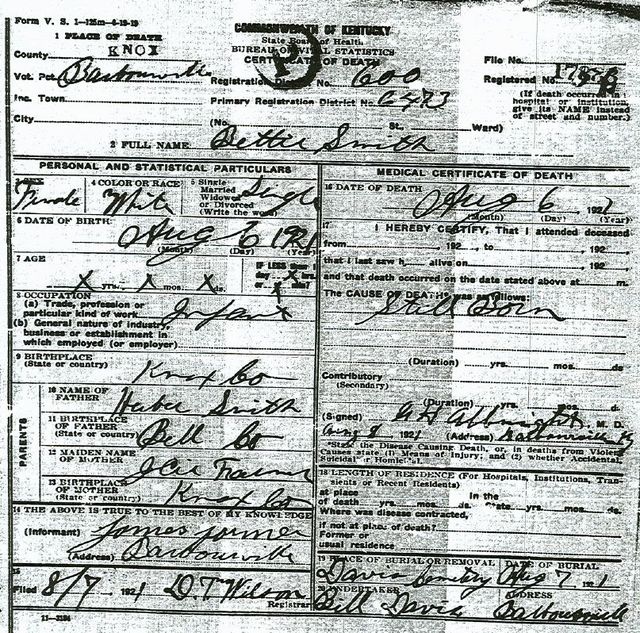 Form V. S. 1-125m-6-19-19
COMMONWEALTH OF KENTUCKY
State Board of Health
BUREAU OF VITAL STATISTICS
CERTIFICATE OF DEATH
1 PLACE OF DEATH
County KNOX
Vot. Pct. Barbourville
Inc. Town
City
Registration District No. 600
Primary Registration District No. 6473
(No. St., Ward)
File No.
Registered No.
(If death occurred in a hospital or institution, give its NAME instead of street and number.)
2 FULL NAME Bettie Smith
PERSONAL AND STATISTICAL PARTICULARS
Female
4 COLOR OR RACE White
5 Single Married Widowed or Divorced (Write the word) Single
6 DATE OF BIRTH Aug 6 1921
(Month) (Day) (Year)
7 AGE X yrs. X mos. X ds.
IF LESS than
8 OCCUPATION
(a) Trade, profession or particular kind of work Infant
(b) General nature of industry, business or establishment in which employed (or employer)
9 BIRTHPLACE
(State or country) Knox Co
PARENTS
10 NAME OF FATHER Smith
11 BIRTHPLACE OF FATHER (State or country) Bell Co
12 MAIDEN NAME OF MOTHER
13 BIRTHPLACE OF MOTHER (State or country) Knox Co
14 THE ABOVE IS TRUE TO THE BEST OF MY KNOWLEDGE
(Informant) James
(Address) Barbourville
15
Filed 8/7 1921 D.T. Wilson
Registrar
11-3184
MEDICAL CERTIFICATE OF DEATH
16 DATE OF DEATH Aug 6 1921
(Month) (Day) (Year)
17 I HEREBY CERTIFY, That I attended deceased
from 192 , to 192
that I last saw h alive on 192
and that death occurred on the date stated above at m.
The CAUSE OF DEATH was as follows:
Still Born
(Duration) yrs. mos. ds.
Contributory
(Secondary)
(Duration) yrs. mos. d.
(Signed) Albright, M. D.
Aug 8 1921 (Address) Barbourville Ky
State the Disease Causing Death, or, in deaths from Violent
Causes state (1) Means of Injury; and (2) whether Accidental,
Suicidal or Homicidal.
18 LENGTH OF RESIDENCE (For Hospitals, Institutions, Transients or Recent Residents)
At place of death yrs. mos. ds. In the State yrs. mos. ds.
Where was disease contracted,
if not at place of death?
Former or
usual residence
19 PLACE OF BURIAL OR REMOVAL Davis Cemetry
DATE OF BURIAL Aug 7 1921
20 UNDERTAKER Bill Davis
ADDRESS Barbourville